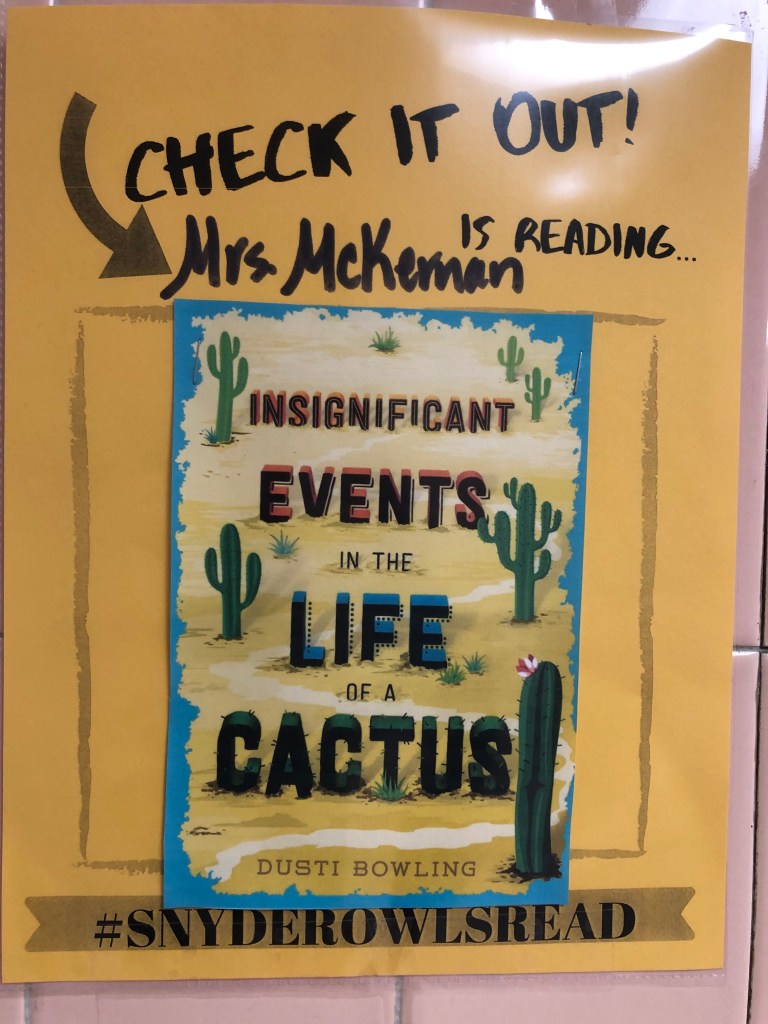 CHECK IT OUT!
Mrs. McKernan IS READING...
INSIGNIFICANT
EVENTS
IN THE
LIFE
OF A
CACTUS
DUSTI BOWLING
#SNYDEROWLSREAD